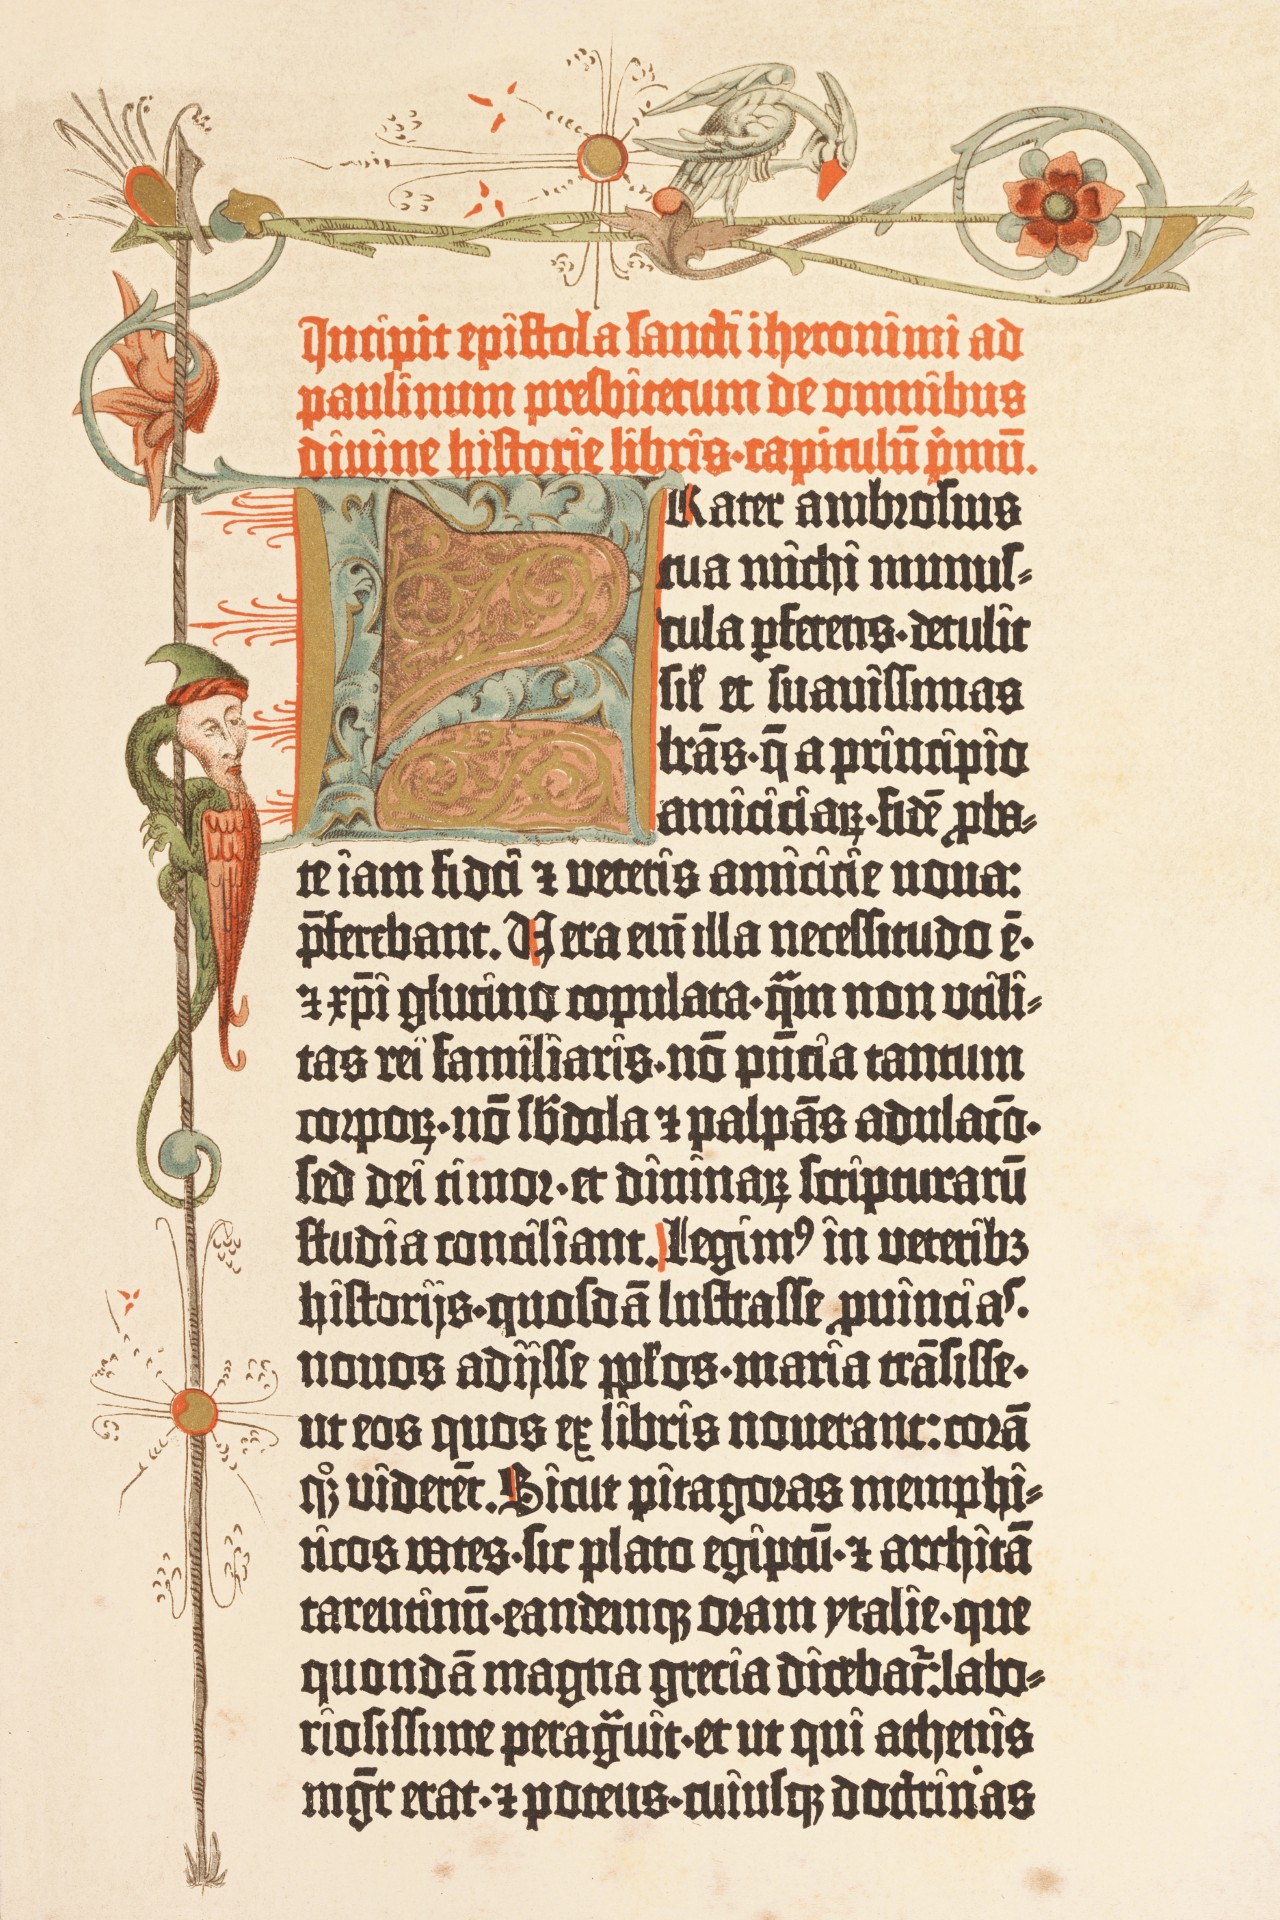 Incipit epistola sancti iheronimi ad
paulinum presbiterum de omnibus
divine historie libris·capitulū p̓mū.
FRater ambrosius
tua michi munus⸗
cula ꝑferens·detulit
sił et suavissimas
lrās·q̄ a principio
amiciciaꝝ·fidē ꝓba⸗
te iam fidei ⁊ veteris amicicie nova:
p̄ferebant. Vera eni̅ illa necessitudo ē·
⁊ xp̄i glutino copulata·qͣm non utili⸗
tas rei familiaris·nō pn̄cia tantum
corpoꝝ·nō sb̓dola ⁊ palpās adulacō·
sed dei timor·et divinaꝝ scripturarū
studia conciliant. Legimꝰ in veteribꝫ
historijs·quosdā lustrasse ꝓvinciaˢ·
novos adijsse ppłos·maria trāsisse·
ut eos quos ex libris noverant: corā
qͦꝫ viderēt. Sicut pitagoras memphi⸗
ticos vates·sic plato egiptū·⁊ architā
tarentinū·eandemqꝫ oram ytalie·que
quondā magna grecia dicebat᷑: labo⸗
riosissime peragͣvit·et ut qui athenis
mgr̄ erat·⁊ potens·cuiusqꝫ doctrinas